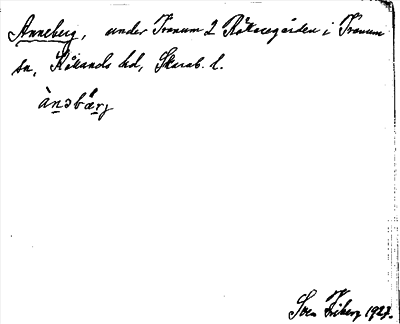 Anneberg, under Tranum 2 Råkaregården i Tranum
sn, Kålands hd, Skarab. l.
ànǝbæ̀rj
Sven Friberg 1927.